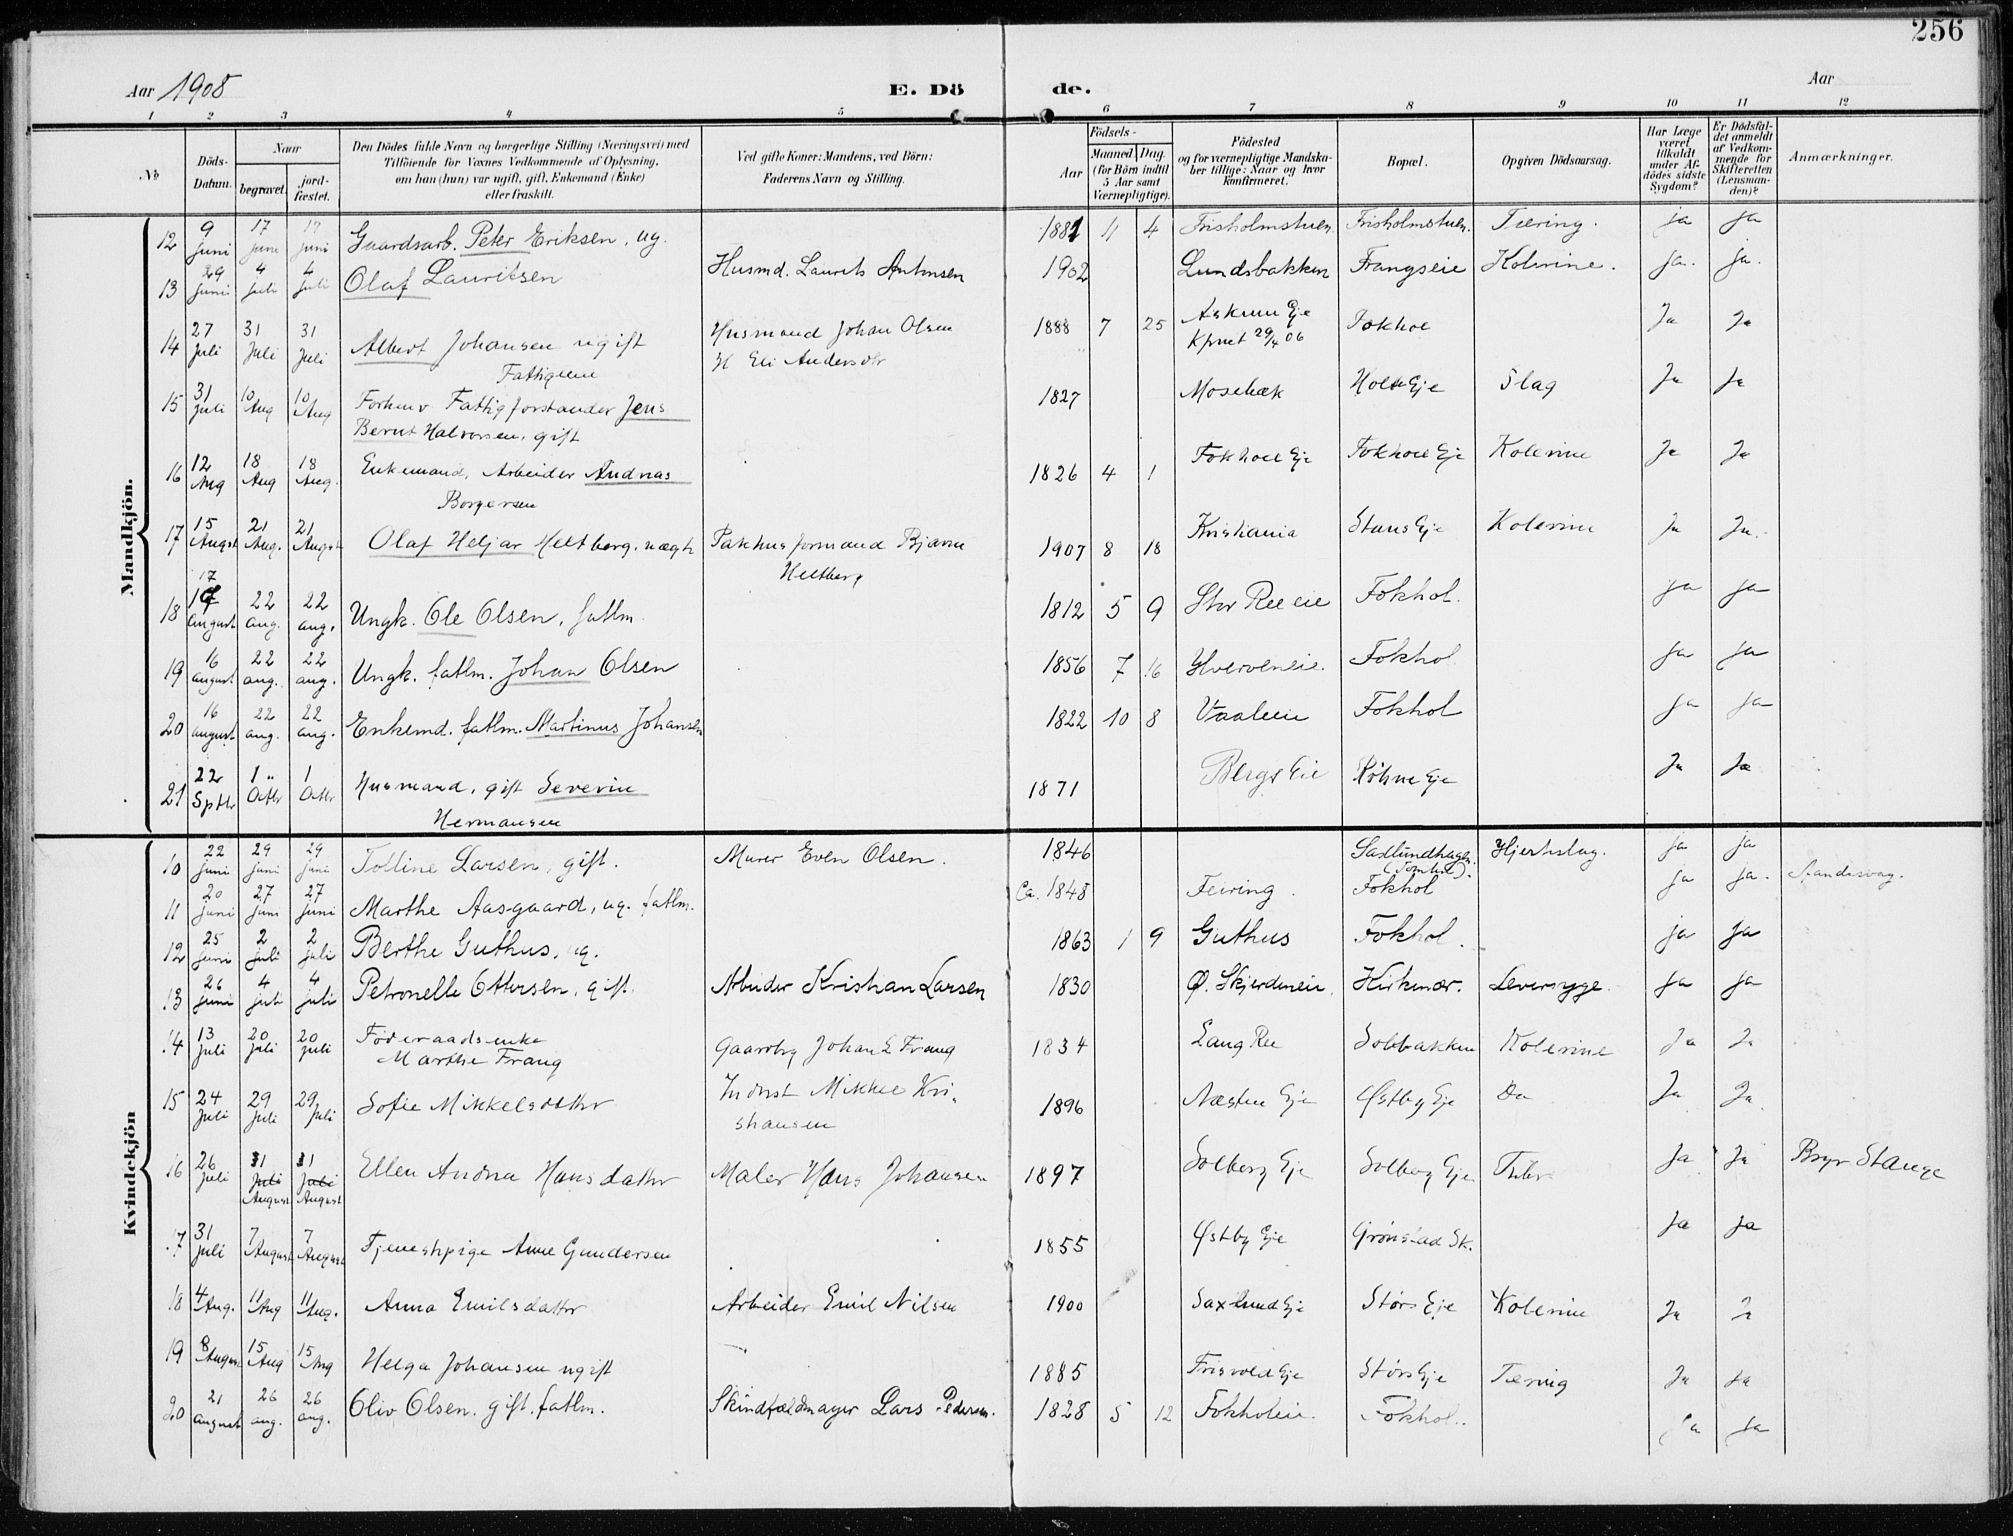 256
Aar 1908
E. Dö de.
Aar
1 2 3 4 5 6 7 8 9 10 11 12
No
Döds-Datum.
Naar
begravet.
jord-fæstet.
Den Dödes fulde Navn og borgerlige Stilling (Næringsvei) med
Tilföiende for Voxnes Vedkommende af Oplysning,
om han (hun) var ugift, gift, Enkemand (Enke)
eller fraskilt.
Ved gifte Koner: Mandens, ved Börn:
Faderens Navn og Stilling.
Födsels-
Aar
Maaned Dag.
(for Börn indtil
5 Aar samt
Værnepligtige).
Födested
og for værnepligtige Mandska-
ber tillige: Naar og hvor
Konfirmeret.
Bopæl.
Opgiven Dödsaarsag.
Har Læge
været
tilkaldt
under Af-
dödes sidste
Sygdom?
Er Dödsfal-
det anmeldt
af Vedkom-
mende for
Skifteretten
(Lensman-
den)?
Anmærkninger.
Mandkjön.
12 9 juni 17 juni 17 juni Gaardsarb. Peter Eriksen, ug. 1881 11 4 Frisholmstuen Frisholmstuen. Tæring. ja ja
13 29 juni 4 juli 4 juli Olaf Lauritsen Husmd. Laurits Antonsen 1902 Lundsbakken Frangseie Kolerine. ja. ja.
14 27 Juli 31 Juli 31 Juli Albert Johansen ugift Husmand Johan Olsen 1888 7 25 Askum Eje Fokhol Ja Ja
Fattiglem H Eli Andersdtr Kfmet 29/4 06
15 31 Juli 10 Aug 10 Aug Forhenv Fattigforstander Jens 1827 Mosebæk Holte Eje Slag Ja Ja
Bernt Halvorsen, gift
16 12 Aug 18 Aug 18 Aug. Enkemand, Arbeider Andreas 1826 4 1 Fokhol Eje Fokhol Eje Kolerine Ja Ja
Borgersen
17 15 Augst 21 Aug. 21 Augst Olaf Heljar Heltberg, uægte Pakhusformand Bjarne 1907 8 18 Kristiania Stans Eje Kolerine Ja Ja.
Heltberg
18 17 august 22 aug. 22 aug. Ungk. Ole Olsen, fatlm. 1812 5 9 Stor Ree eie Fokhol. ja ja
19 16 august 22 aug. 22 aug. Ungk. fatlm. Johan Olsen 1856 7 16 Hverveneie. Fokhol ja ja
20 16 august 22 aug. 22 aug. Enkemd. fatlm. Martinus Johansen 1822 10 8 Vaaleie Fokhol ja ja
21 22 Sptbr 1 Octbr 1 Octbr Husmand, gift Severin 1871 Bergs Eie Köhne Eje Ja Ja
Hermansen
Kvindekjön
10 22 juni 29 juni 29 juni Tolline Larsen, gift. Murer Even Olsen. 1846 Saxlundhagen (Tomten). Hjerteslag. ja ja
11 20 juni 27 juni 27 juni Marthe Aasgaard, ug. fatlm. Ca. 1848 Feiring. Fokhol ja ja. Sindssvag.
12 25 juni 2 juli 2 juli Berthe Guthus, ug. 1863 1 9 Guthus Fokhol. ja ja
13 26 juni 4 juli 4 juli Petronelle Ottersen, gift. Arbeider Kristian Larsen 1830 Ø. Skjerdeneie. Kirkenær. Leversyge. ja ja
14 13 Juli 20 Juli 20 juli Föderaadsenke Gaardbr Johan E Frang 1834 Lang Ree Solbakken Kolerine Ja Ja
Marthe Frang
15 24 Juli 29 Juli 29 Juli Sofie Mikkelsdatter Inderst Mikkel Kri- 1896 Næsten Eje Østby Eje Do Ja Ja
stiansen
16 26 Juli 31 Juli August 31 Juli August Ellen Andrea Hansdatter Maler Hans Johansen 1897 Solberg Eje Solberg Eje Tuber Ja Ja Bryr Stange
17 31 Juli 7 August 7 August Tjenestepige Anne Gundersen 1855 Østby Eje Grönstad Sk. Ja Ja
18 4 Aug. 11 Aug 11 Aug. Anna Emilsdatter Arbeider Emil Nilsen 1900 Saxlund Eje Störs Eje Kolerine Ja Ja
19 8 August 15 Aug 15 Aug Helga Johansen ugift 1885 Frisvold Eje Störs Eje Tæring Ja Ja
20 21 august 26 aug. 26 aug. Oliv Olsen. gift. fatlm. Skindfældmager Lars Pedersen. 1828 5 12 Fokholeie. Fokhol. ja ja